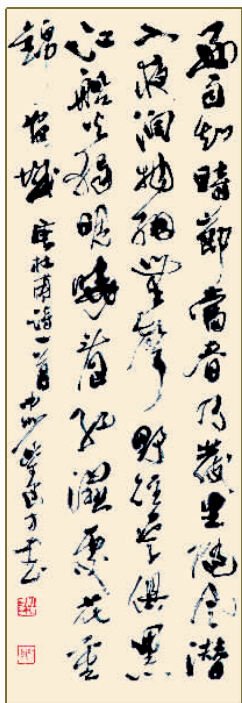 好雨知時節當春乃發生隨風潛
入夜潤物細無聲野徑雲俱黑
江船火獨明曉看紅濕處花重
錦官城 唐杜甫詩一首